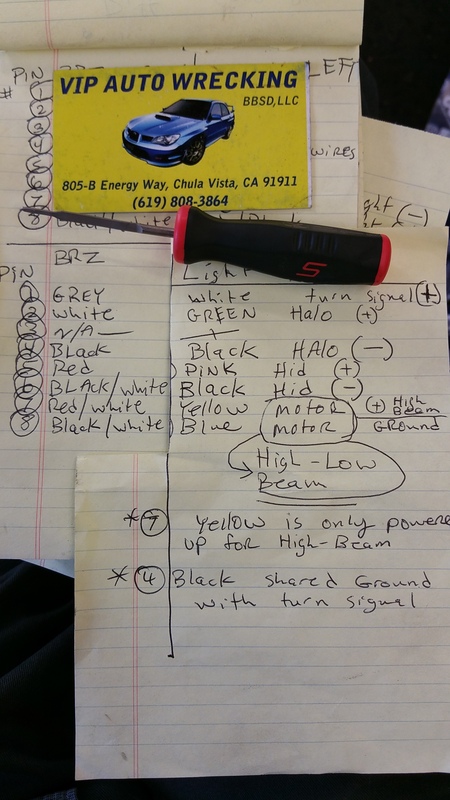 PIN LEFT
#
1
2
3
4
5 WIRES
6
7
8 Black/white
VIP AUTO WRECKING
BBSD,LLC
805-B Energy Way, Chula Vista, CA 91911
(619) 808-3864
(-)
S
PIN BRZ Light
1 GREY white turn signal (+)
2 white GREEN Halo (+)
3 N/A —
4 Black Black HALO (-)
5 Red PINK Hid (+)
6 BLACK/white Black Hid (-)
7 Red/white Yellow motor (+) High Beam
8 Black/white Blue motor GROUND
High-Low
Beam
*7 Yellow is only powere
up for High-Beam
*4 Black shared Ground
with turn signal